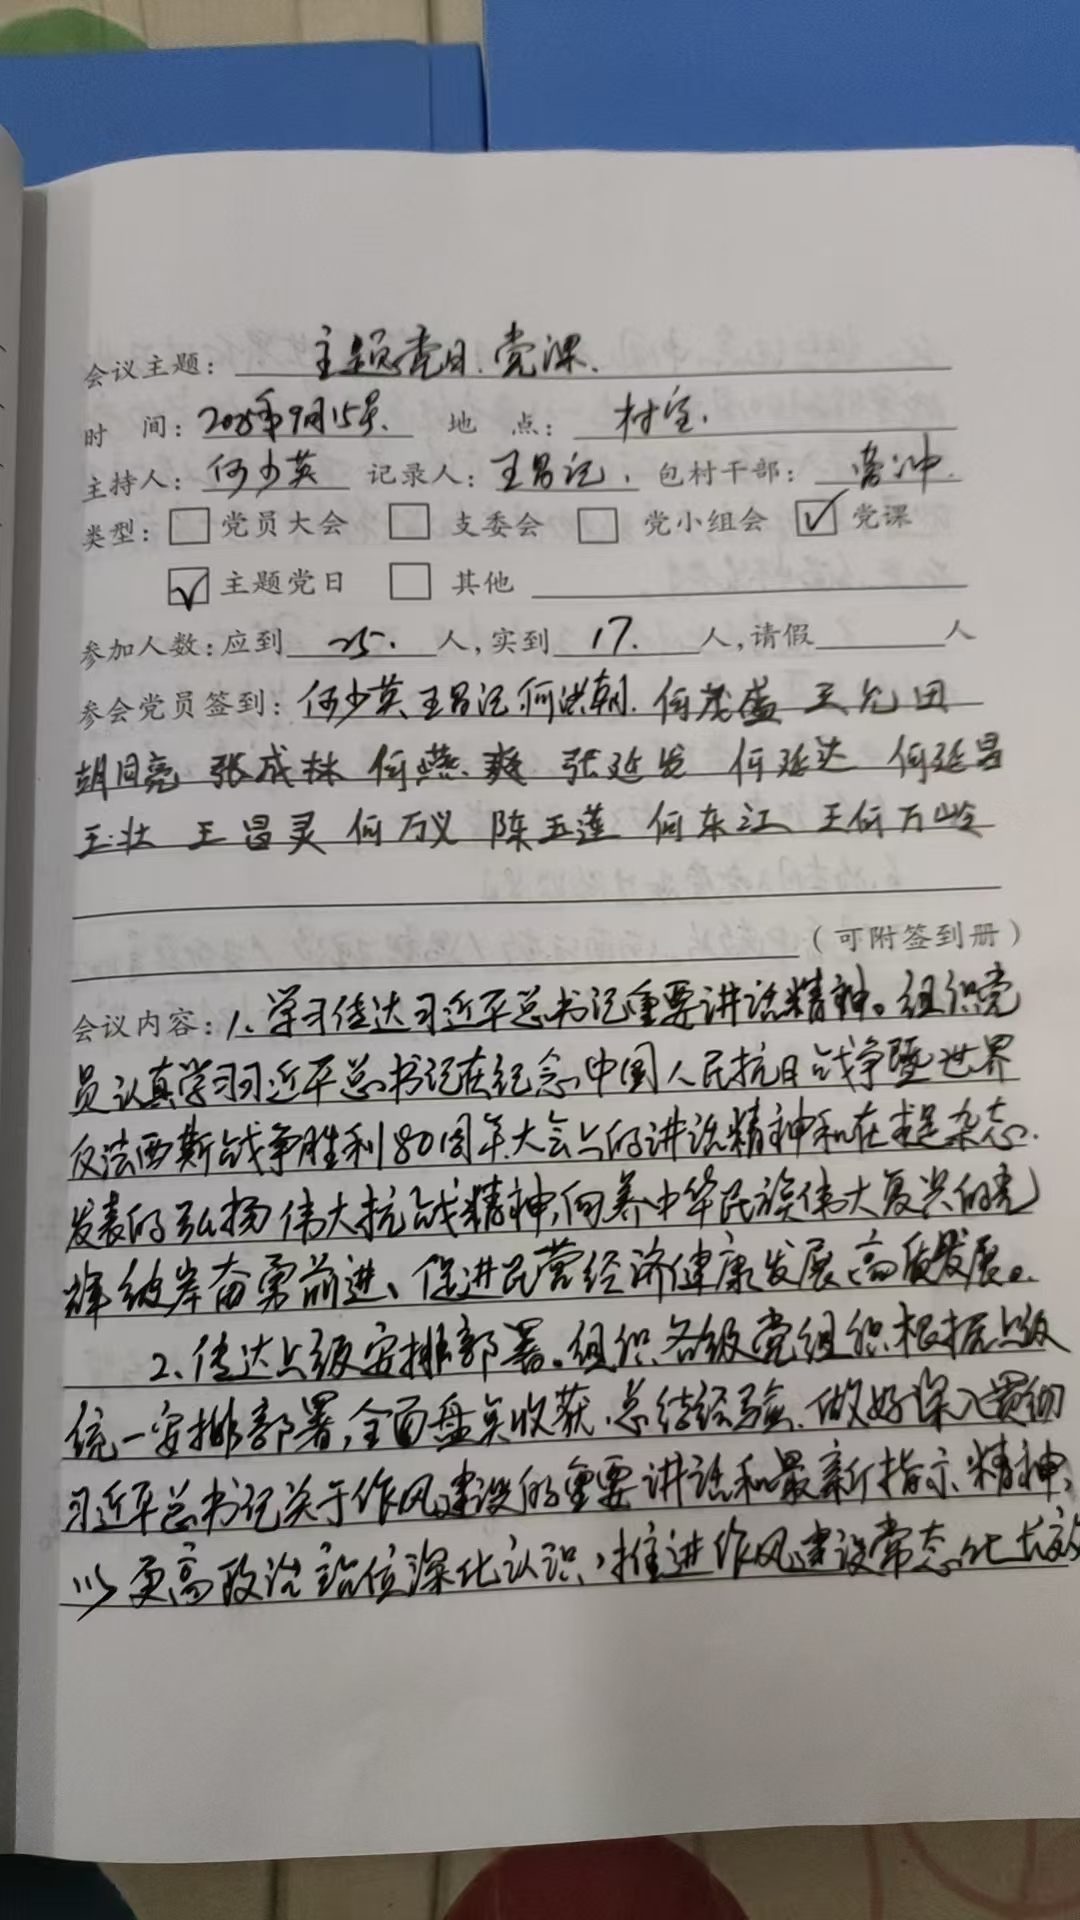 会议主题：主题党日.党课.
时 间：2025年9月15号. 地 点：村室.
主持人：何少英 记录人：王昌记. 包村干部：曹冲.
类型：□党员大会 □支委会 □党小组会 ☑党课
☑主题党日 □其他
参加人数：应到25.人，实到17.人，请假 人
参会党员签到：何少英 王昌记 何洪朝. 何茂盛 王允田
胡同亮 张成林 何燕爽 张延发 何延达 何延昌
王壮 王昌灵 何万义 陈玉莲 何东江 王何万岭
（可附签到册）
会议内容：1、学习传达习近平总书记重要讲话精神。组织党
员认真学习习近平总书记在纪念中国人民抗日战争暨世界
反法西斯战争胜利80周年大会上的讲话精神和在求是杂志
发表的弘扬伟大抗战精神，向着中华民族伟大复兴的光
辉彼岸奋勇前进、促进民营经济健康发展、高质发展。
2、传达上级安排部署。组织各级党组织根据上级
统一安排部署，全面盘点收获、总结经验、做好深入贯彻
习近平总书记关于作风建设的重要讲话和最新指示精神，
以更高政治站位深化认识，推进作风建设常态化长效